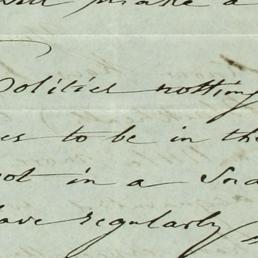 make a
Politics nothing
es to be in the
not in a
have regularly